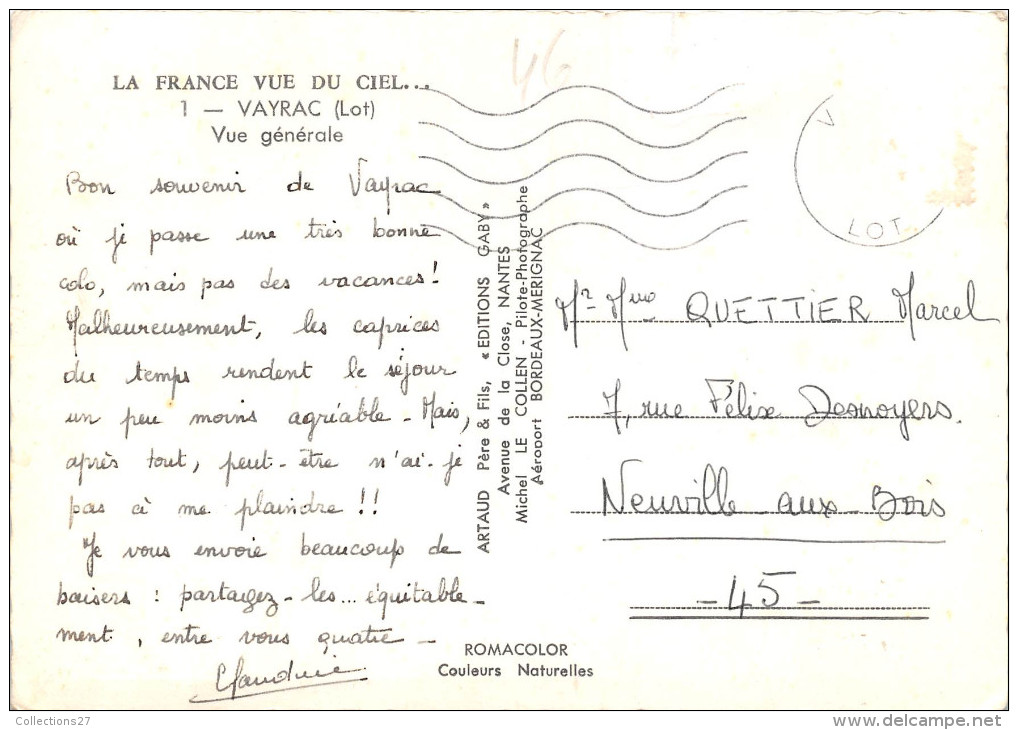 46
LA FRANCE VUE DU CIEL...
1 — VAYRAC (Lot)
Vue générale
Bon souvenir de Vayrac
où je passe une très bonne
colo, mais pas des vacances!
Malheureusement, les caprices
du temps rendent le séjour
un peu moins agréable - Mais,
après tout, peut-être n'ai-je
pas à me plaindre !!
Je vous envoie beaucoup de
baisers : partagez-les... équitable-
ment, entre vous quatre -
Claudine
ARTAUD Père & Fils, « EDITIONS GABY »
Avenue de la Close, NANTES
Michel LE COLLEN - Pilote-Photographe
Aéroport BORDEAUX-MERIGNAC
V
LOT
Mr Mme QUETTIER Marcel
7, rue Félix Desnoyers.
Neuville aux Bois
- 45 -
ROMACOLOR
Couleurs Naturelles
Collections27
delcampe.net